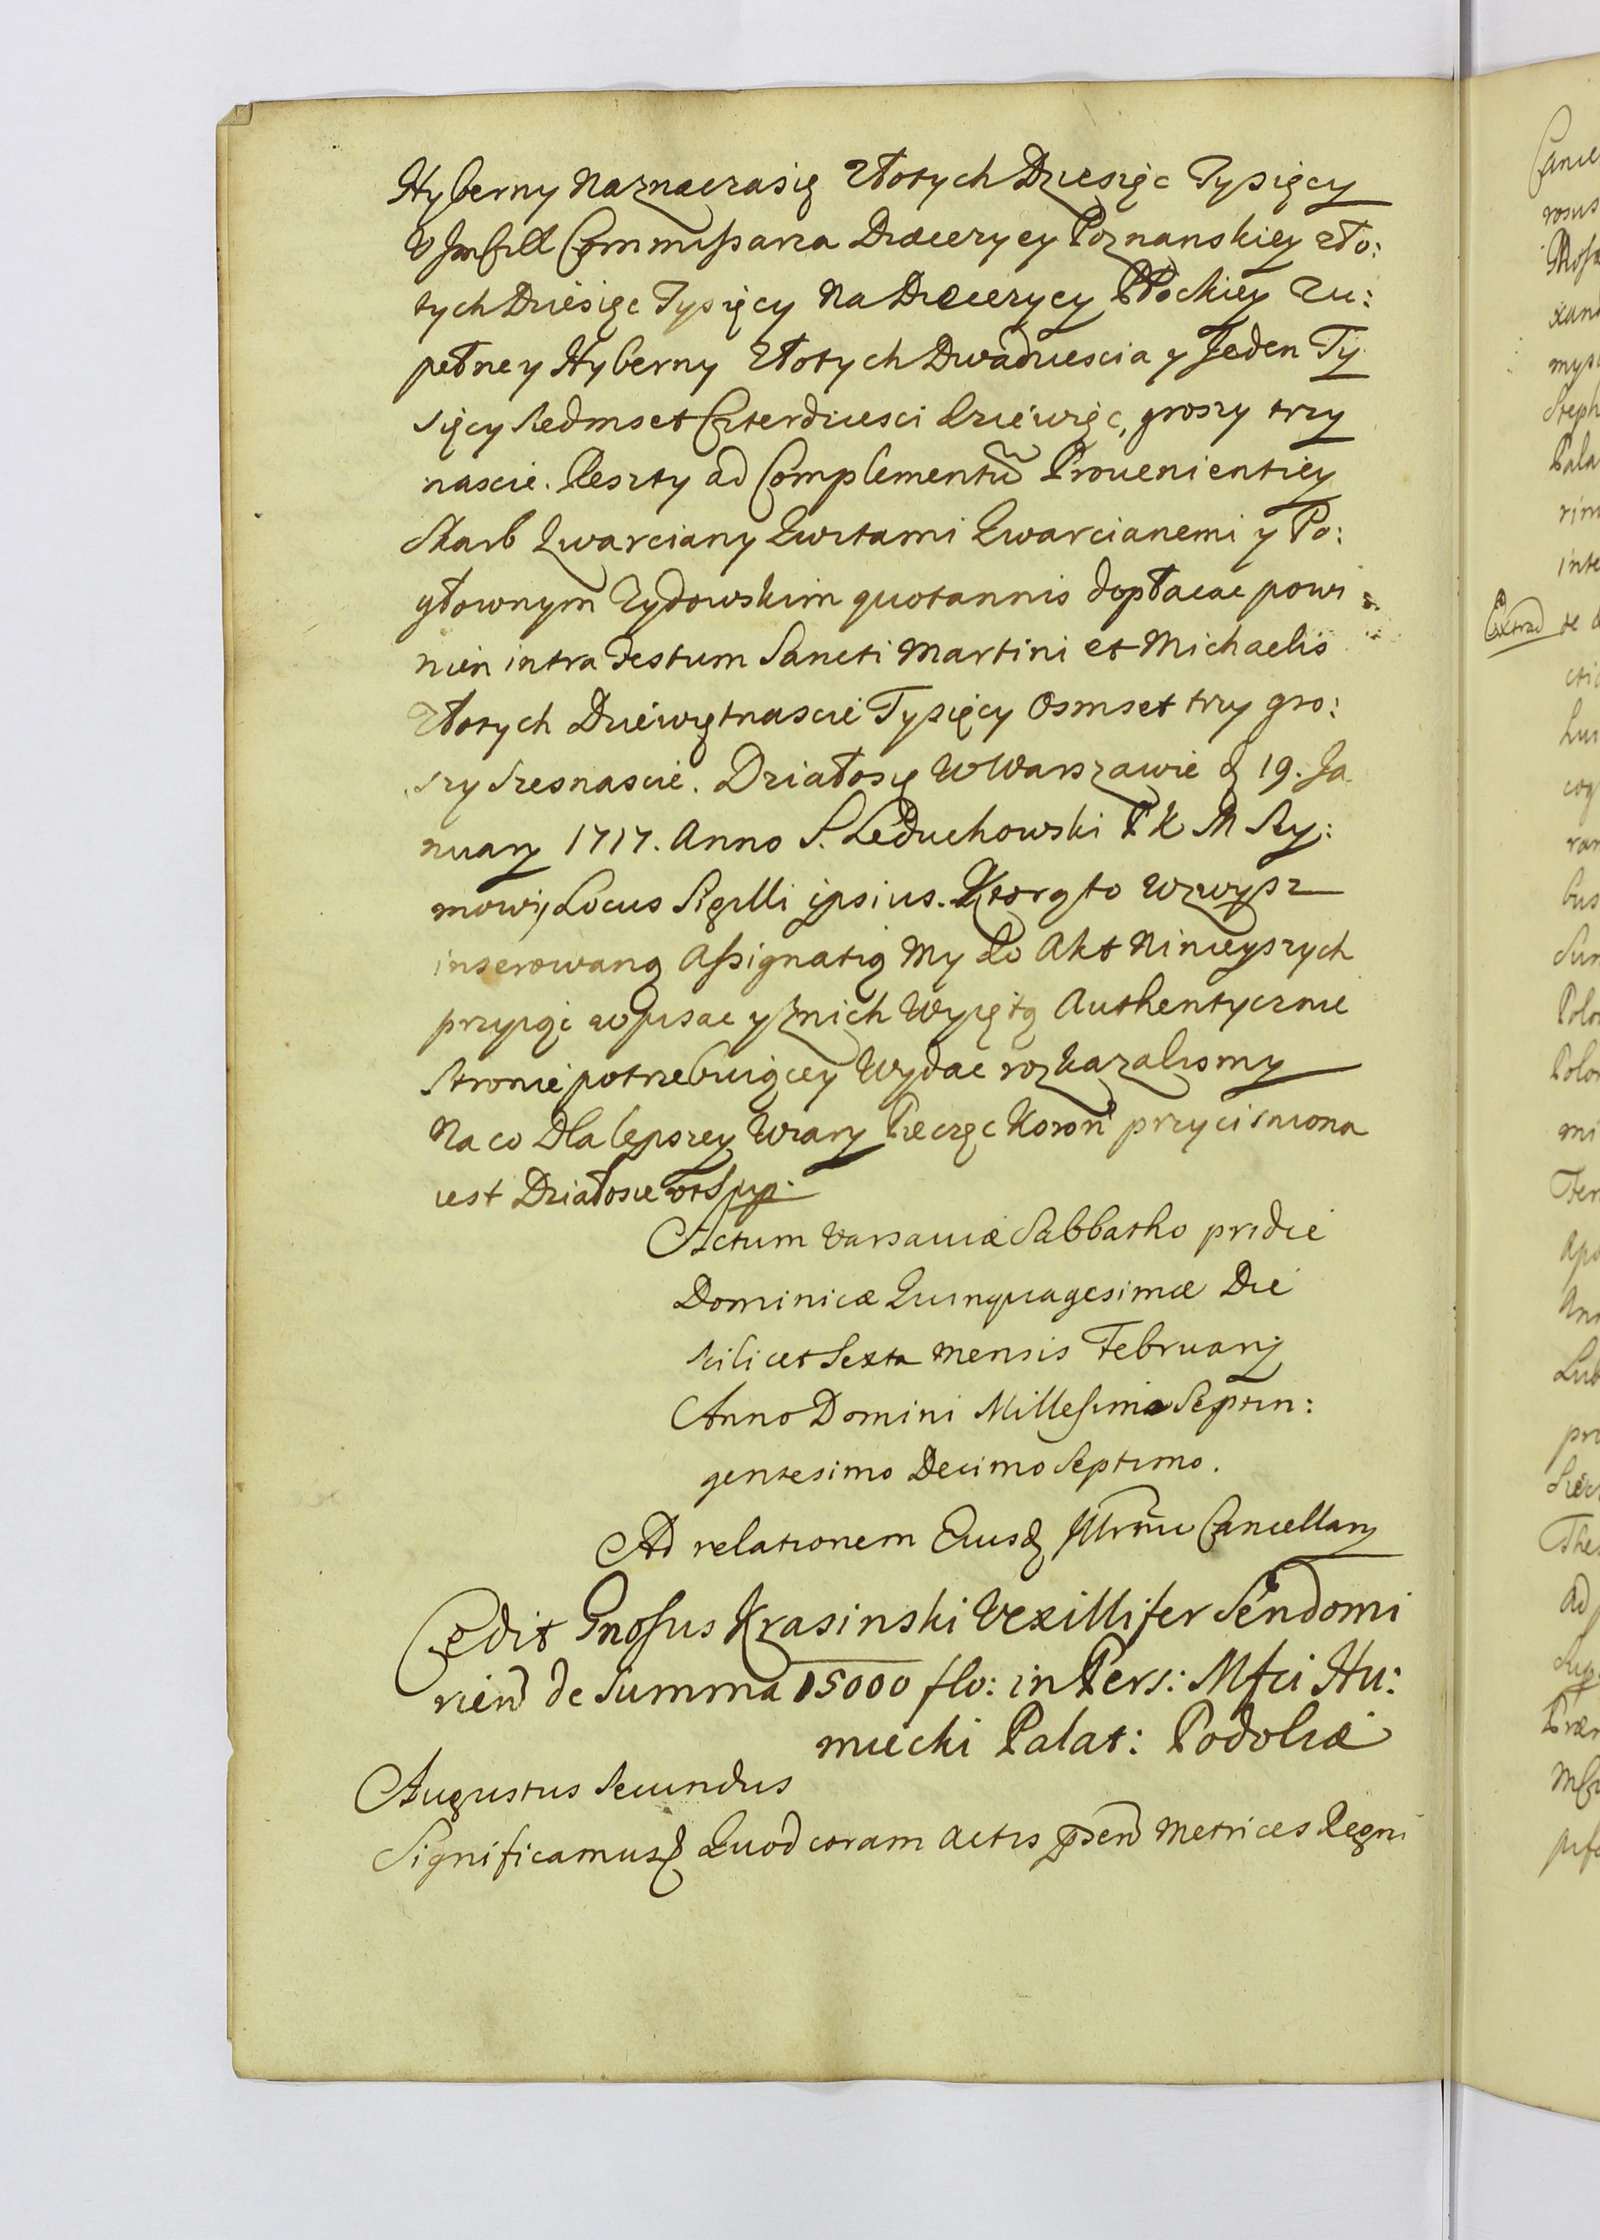 Hyberny Naznaczasię Złotych Dziesięc Tysięcy
Commissarza Diaecezyey Poznanskiey zło:
tych Dziesięc Tysięcy Na Diaecezycy Płockiey Zu:
pełney Hyberny Złotych Dwadziescia y Jeden Ty
sięcy Siedmset Czterdziesci dziewięc, groszy trzy
nascie. Reszty ad Complementũ Prouenientiey
Skarb Kwarciany Kwitami Kwarcianemi y Po:
głownym Zydowskim quotannis dopłacac powi:
nien intra Festum Sancti Martini et Michaelis
Złotych Dziewiętnascie Tysięcy Osmset trzy gro:
szy szesnascie. Działosię W Warszawie d 19. Ja
nuary 1717. Anno S. Leduchowski P K M Ry:
mowi, Locus Sigilli ipsius. Ktorąto wzwysz
inserowaną Assignatią My do Akt Ninieyszych
przyiąc wpisac y znich Wyiętą Authentycznie
Stronie potrzebuiącey Wydac rozkazalismy
Na co Dla lepszey Wiary Pieczęc Koron przycisniona
iest Działosie ut Sup:
Actum Varsauiæ Sabbatho pridie
Dominicæ Quinquagesimæ Die
scilicet Sexta mensis February
Anno Domini Millesimo Septin:
gentesimo Decimo Septimo.
Ad relationem Eiusd Cancellary
Cedit Gnosus Krasinski Vexillifer Sendomi
rien de Summa 15000 flo: in Pers: Mfci Hu:
miecki Palat: Podoliæ
Augustus Secundus
Significamus Quod coram Actis Metrices Regni